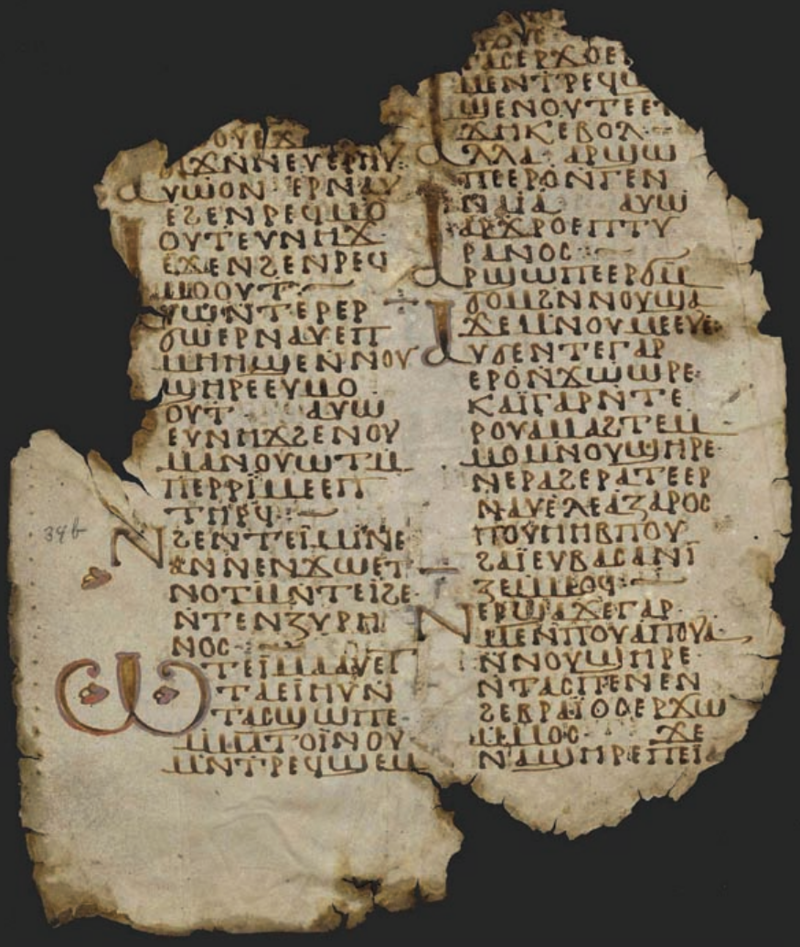 ⲟⲩⲉϫ
ⲛϫⲛⲛⲉⲩⲉⲣⲏⲩ:
ⲁⲩⲱⲟⲛ ⲉⲣⲛⲁⲩ
ⲉϩⲉⲛⲣⲉϥⲙⲟ
ⲟⲩⲧⲉⲩⲛⲏϫ
ⲉϫⲉⲛϩⲉⲛⲣⲉϥ
ⲙⲟⲟⲩⲧ
ⲁⲩⲱⲛⲧⲉⲣⲉⲣ
ϭⲱⲉⲣⲛⲁⲩⲉⲡ
ⲙⲏⲏϣⲉⲛⲛⲟⲩ
ϣⲏⲣⲉⲉⲩⲙⲟ
ⲟⲩⲧ· ⲁⲩⲱ
ⲉⲩⲛⲏϫϩⲉⲛⲟⲩ
ⲙⲁⲛⲟⲩⲱⲧⲙ
ⲡⲉⲣⲣⲓⲙⲉⲉⲡ
ⲧⲏⲣϥ:
ⲛϩⲉⲛⲧⲉⲓⲙⲓⲛⲉ
ⲁⲛⲛⲉⲛϫⲱⲉⲧ
ⲛⲟⲧⲙⲛⲧⲉⲓϩⲉ·
ⲛⲧⲉⲛⲍⲩⲣⲏ
ⲛⲟⲥ
ⲱⲧⲉⲓⲙⲁⲁⲩⲉⲧ
ⲧⲁⲉⲓⲏⲩⲛ
ⲧⲁⲥϣⲱⲡⲉ·
ⲙⲙⲁⲧⲟⲓⲛⲟⲩ
ⲙⲛⲧⲣⲉϥϣⲉⲙ
34b
ⲧⲁⲥⲉⲣϫⲟⲉⲓ
ⲙⲉⲛⲧⲣⲉϥϣ
ϣⲉⲛⲟⲩⲧⲉⲉⲧ
ϫⲏⲕⲉⲃⲟⲗ·
ⲁⲗⲗⲁ ⲁⲣϣⲱ
ⲡⲉⲉⲣⲟⲛⲅⲉⲛ
ⲛⲁⲓⲁ· ⲁⲩⲱ
ⲁⲣϫⲣⲟⲉⲡⲧⲩ
ⲣⲁⲛⲟⲥ:
ⲁⲣϣⲱⲡⲉⲉⲣϭⲙ
ϭⲟⲙϩⲛⲛⲟⲩϣⲁ
ϫⲉⲙⲛⲟⲩⲙⲉⲉⲩⲉ:
ⲁⲩϭⲉⲛⲧⲉⲅⲁⲣ
ⲉⲣⲟⲛϫⲱⲱⲣⲉ·
ⲕⲁⲓⲅⲁⲣⲛⲧⲉ
ⲣⲟⲩⲁⲙⲁϩⲧⲉⲙ
ⲙⲟⲙⲛⲟⲩϣⲏⲣⲉ·
ⲛⲉⲣⲁϩⲉⲣⲁⲧⲉⲉⲣ
ⲛⲁⲩⲉⲗⲉⲁⲍⲁⲣⲟⲥ
ⲡⲟⲩⲏⲏⲃⲡⲟⲩ
ϩⲁⲓⲉⲩⲃⲁⲥⲁⲛⲓ
ⲍⲉⲙⲙⲟϥ:
ⲛⲉⲣϣⲁϫⲉⲅⲁⲣ·
ⲙⲛⲡⲟⲩⲁⲡⲟⲩⲁ
ⲛⲛⲟⲩϣⲏⲣⲉ
ⲛⲧⲁⲥⲡⲉⲛⲉⲛ
ϩⲉⲃⲣⲁⲓⲟⲥⲉⲣϫⲱ
ⲙⲙⲟⲥ· ϫⲉ
ⲛⲁϣⲏⲣⲉⲡⲉⲓ